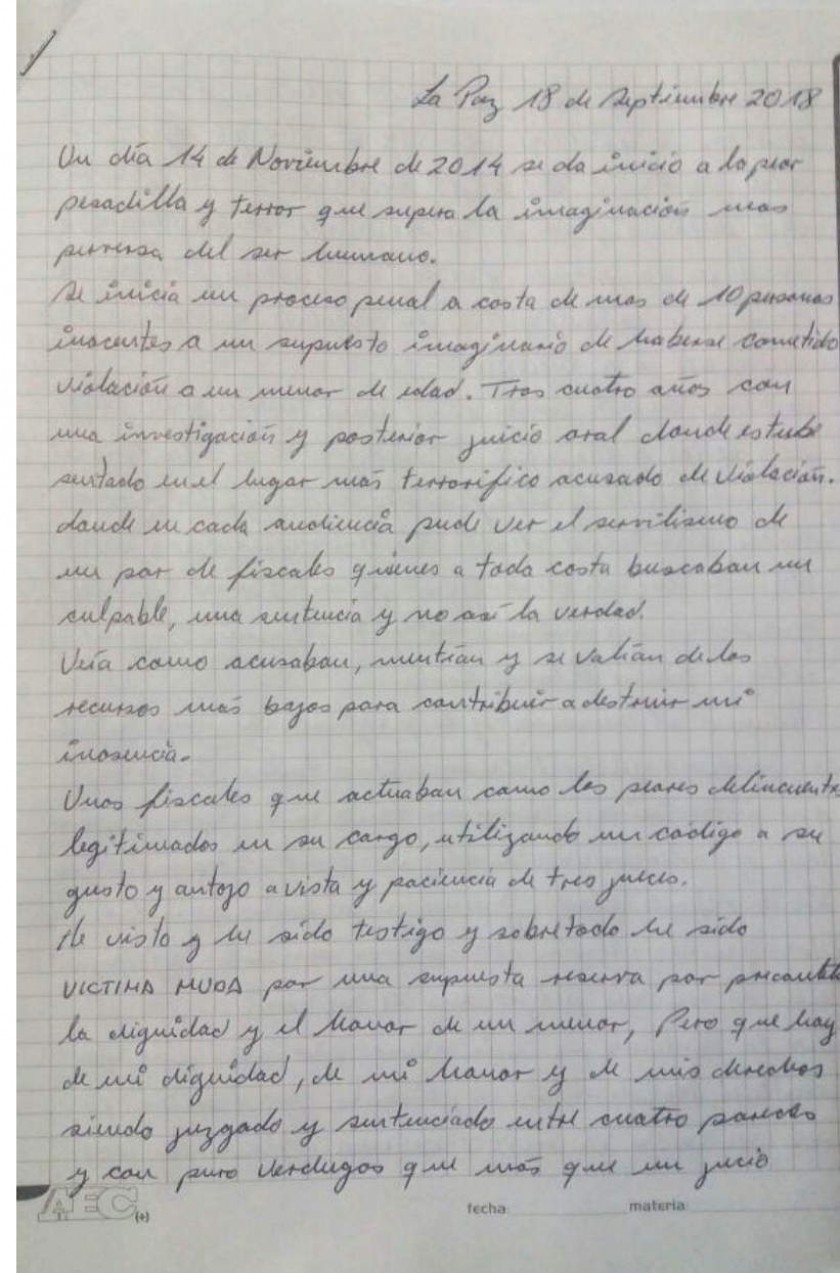 La Paz 18 de Septiembre 2018
Un día 14 de Noviembre de 2014 se da inicio a la peor
pesadilla y terror que supera la imaginación mas
perversa del ser humano.
Se inicia un proceso penal a costa de mas de 10 personas
inocentes a un supuesto imaginario de haberse cometido
violación a un menor de edad. Tras cuatro años con
una investigación y posterior juicio oral donde estube
sentado en el lugar más terrorifico acusado de violación.
donde en cada audiencia pude ver el servilismo de
un par de fiscales quienes a toda costa buscaban un
culpable, una sentencia y no así la verdad.
Veía como acusaban, mentían y se valían de los
recursos más bajos para contribuir a destruir mi
inosencia.
Unos fiscales que actuaban como los peores delincuentes
legitimados en su cargo, utilizando un código a su
gusto y antojo a vista y paciencia de tres jueces.
He visto y he sido testigo y sobretodo he sido
VICTIMA MUDA por una supuesta reserva por precautelar
la dignidad y el honor de un menor, Pero que hay
de mi dignidad, de mi honor y de mis derechos
siendo juzgado y sentenciado entre cuatro paredes
y con puro verdugos que más que un jucio
AEC (+)
fecha: materia: